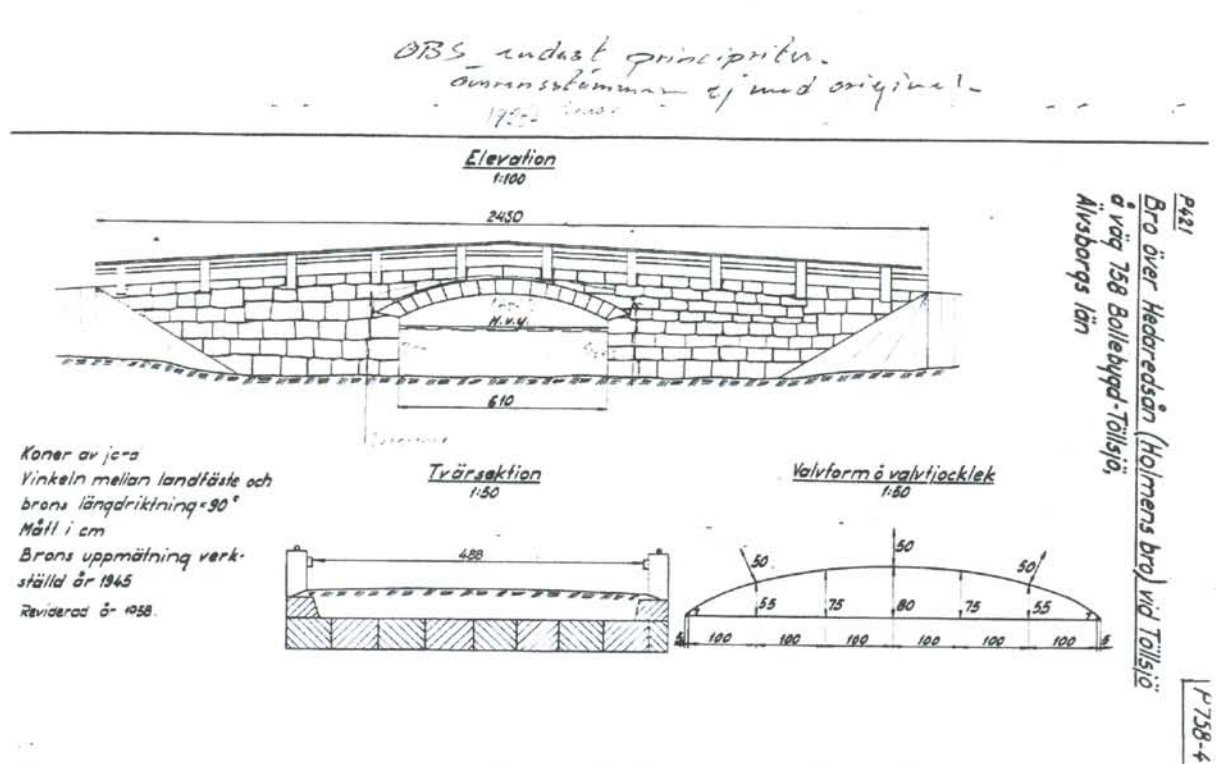 OBS endast principritn.
ej med original
Elevation
1:100
2450
M.v.y.
610
Koner av jord
Vinkeln mellan landfäste och
brons längdriktning = 90°
Mått i cm
Brons uppmätning verk-
ställd år 1945
Reviderad år 1958.
Tvärsektion
1:50
488
Valvform o valvtjocklek
1:50
50 50 50
55 75 80 75 55
5 100 100 100 100 100 100 5
P421
Bro över Hedaredsån (Holmens bro) vid Töllsjö
å väg 758 Bollebygd-Töllsjö,
Älvsborgs län
P758-4